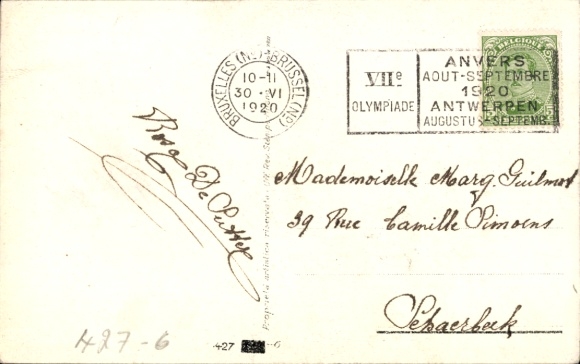 BRUXELLES (N-D) BRUSSEL (NP)
10-11
30 · VI
1920
VIIe
OLYMPIADE
ANVERS
AOUT-SEPTEMBRE
1920
ANTWERPEN
AUGUSTUS-SEPTEMB.
BELGIQUE
Rosa De Sutter
Mademoiselle Marg. Guilmot
39 Rue Camille Simoens
Schaerbeek
Proprietà artistica riservata
427-6
427 -6